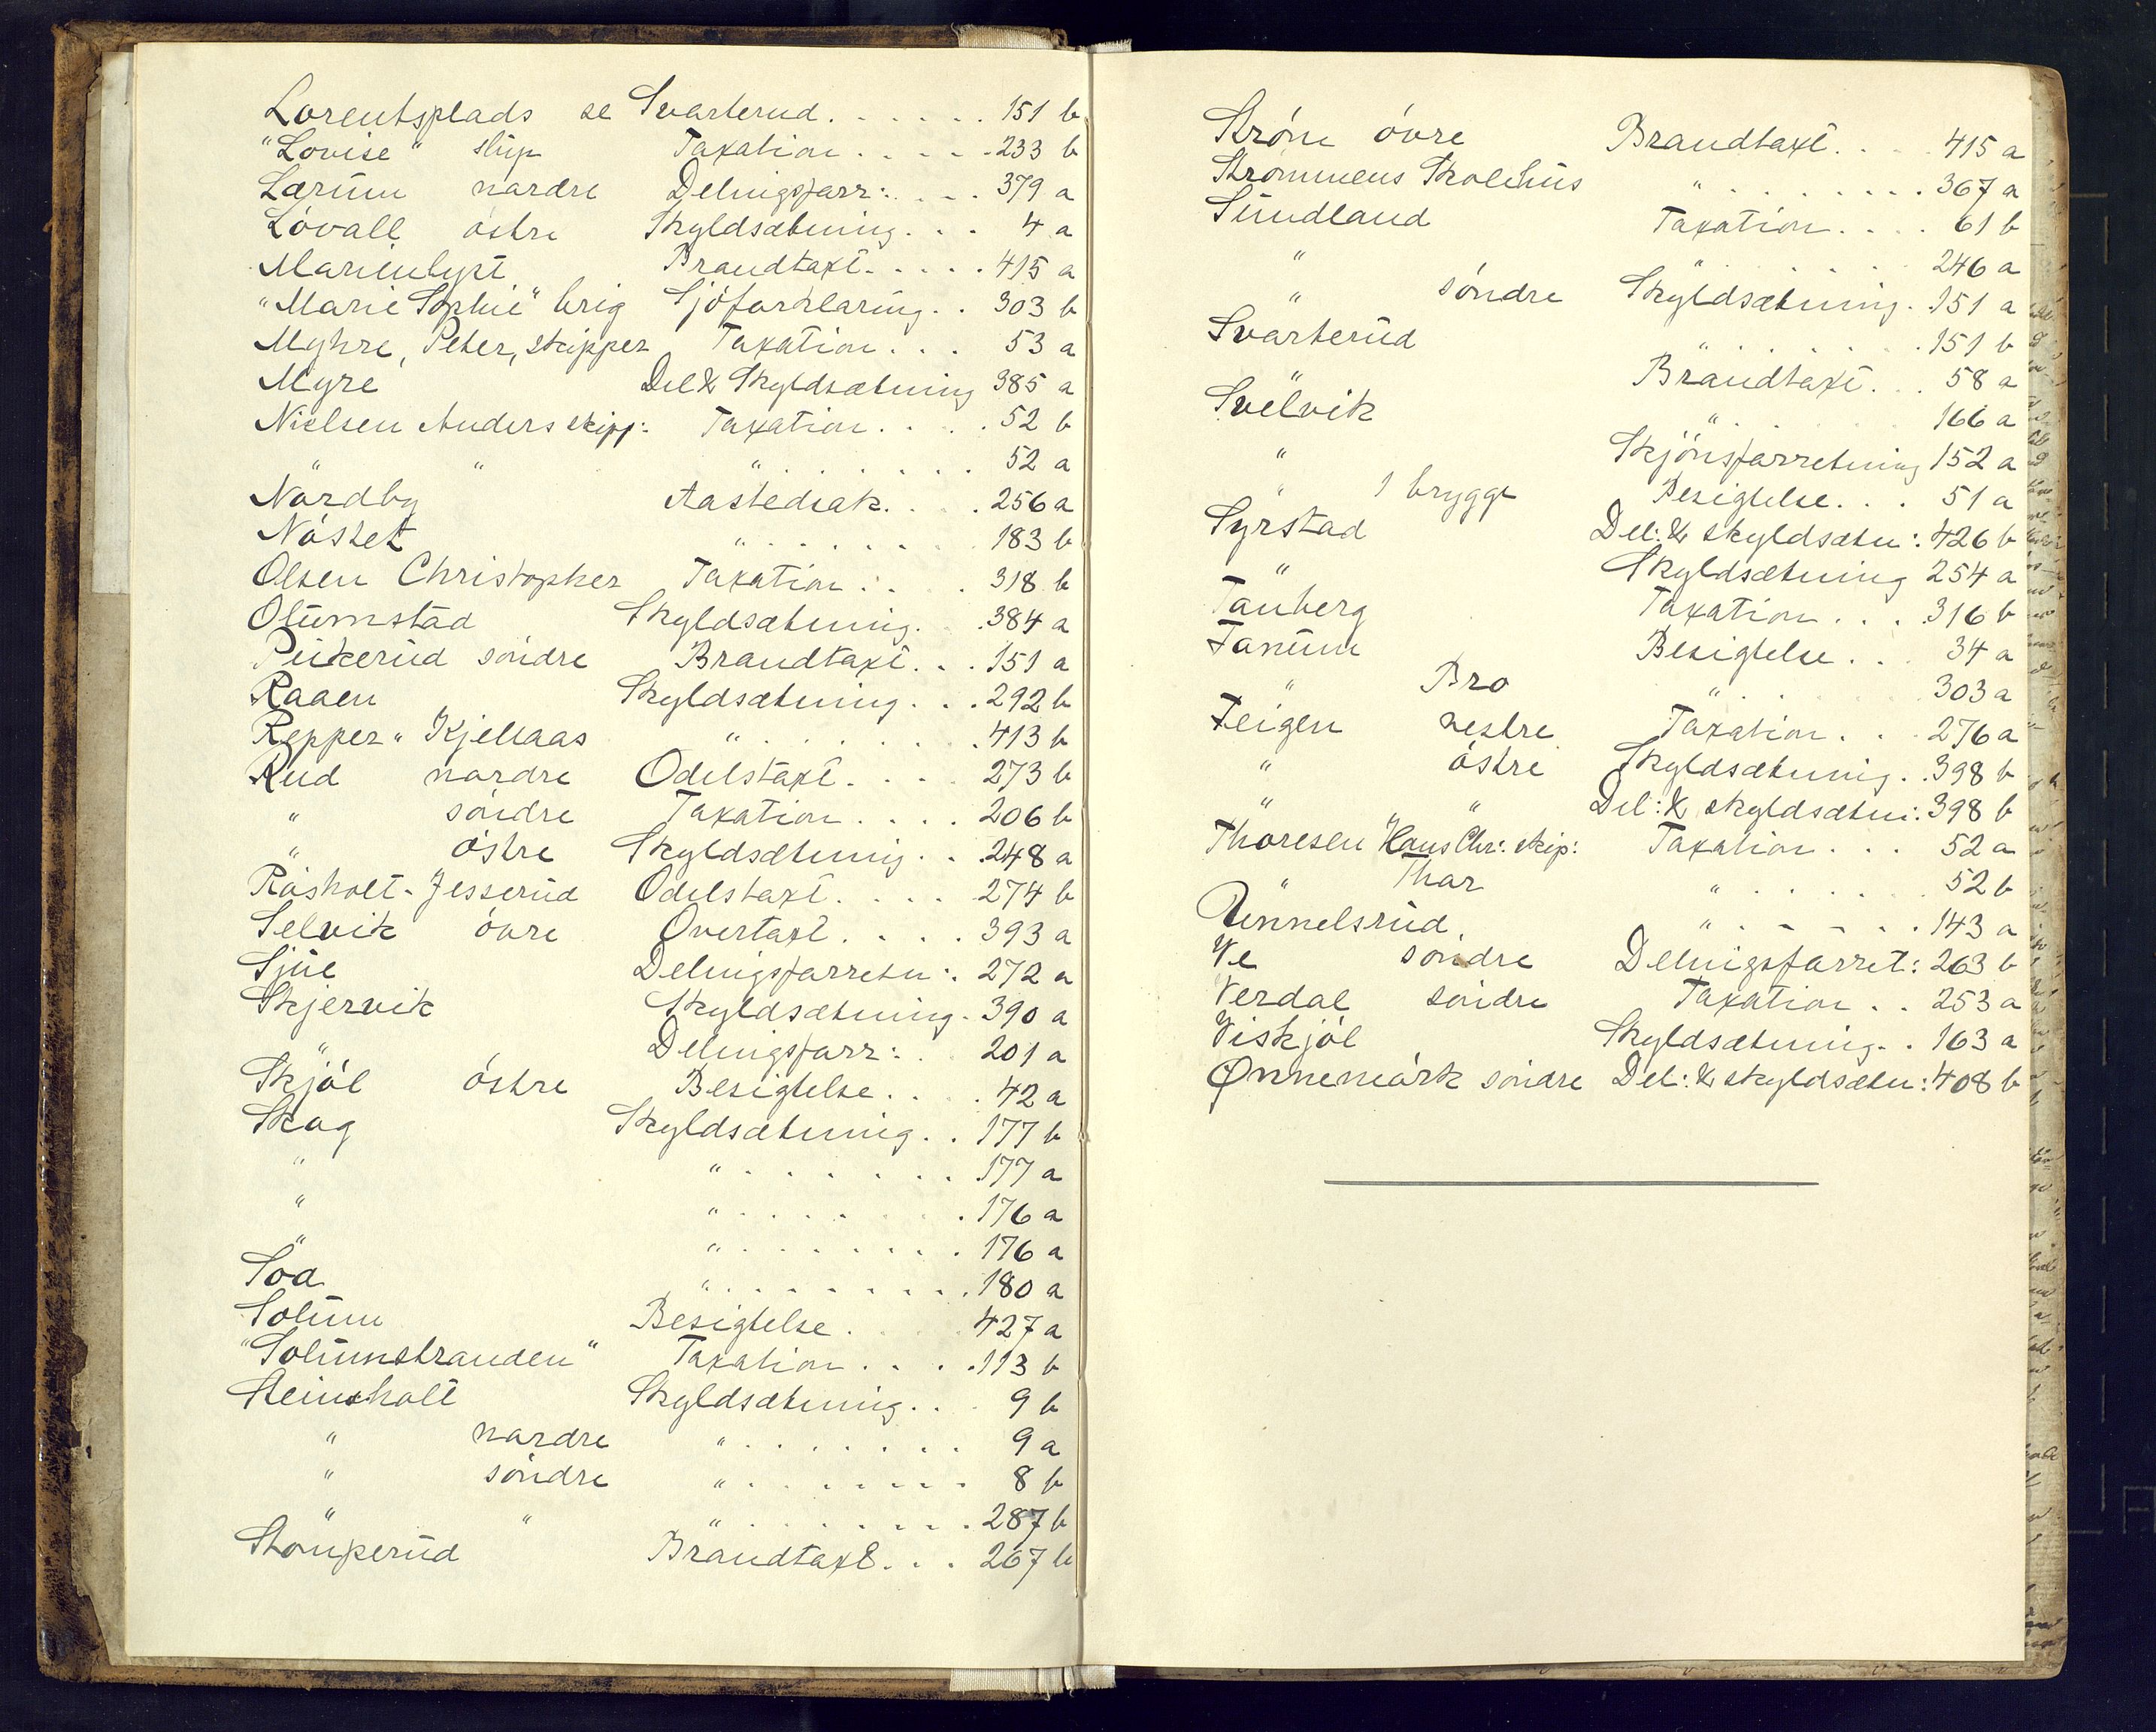 Lorentsplads se Svarterud. . . . . . 151 b
"Lovise" slup Taxation. . . . . 233 b
Lærum nordre Delingsforr:. . . . 379 a
Lövall östre Skyldsætning. . . 4 a
Marienlyst Brandtaxt. . . . . 415 a
"Marie Sophie" brig Sjöforklaring. . 303 b
Myhre, Peter, skipper Taxation. . . 53 a
Myre Del & Skyldsætning 385 a
Nielsen Anders skipp: Taxation. . . . 52 b
" " " . . . . . . . 52 a
Nordby Aastedsak. . . . 256 a
Nöstet " . . . . . . 183 b
Olsen Christopher Taxation. . . . 318 b
Olumstad Skyldsætning. . . 384 a
Peikerud söndre Brandtaxt. . . 151 a
Raaen Skyldsætning. . . 292 b
Repper " Kjellaas " . . . . . . . 413 b
Rud nordre Odelstaxt. . . . 273 b
" söndre Taxation. . . . 206 b
" östre Skyldsætning. . . 248 a
Rösholt-Jesserud Odelstaxt. . . . . 274 b
Selvik övre Overtaxt. . . . . 393 a
Sjue Delingsforretn:. 272 a
Skjervik Skyldsætning. 390 a
" Delingsforr:. . 201 a
Skjöl östre Besigtelse. . . . 42 a
Skog Skyldsætning. . 177 b
" " . . . . . . . 177 a
" " . . . . . . . 176 a
" " . . . . . . . 176 a
Soa " . . . . . . . . 180 a
Solum Besigtelse. . . . 427 a
"Solumstranden" Taxation. . . . 113 b
Steinsholt Skyldsætning. . . 9 b
" nordre " . . . . . . . 9 a
" söndre " . . . . . . . 8 b
" " " . . . . . . . 287 b
Stomperud Brandtaxt. . . 267 b
Ström övre Brandtaxt. . . . 415 a
Strommens Skolehus " . . . . . . . . 367 a
Sundland Taxation. . . . 61 b
" " . . . . . 246 a
" söndre Skyldsætning. 151 a
Svarterud " . . . . . . 151 b
" Brandtaxt. . . 58 a
Svelvik " . . . . 166 a
" Skjönsforretning 152 a
" 1 brygge Besigtelse. . . 51 a
Syrstad Del: & skyldsætn: 426 b
" Skyldsætning 254 a
Tanberg Taxation. . . . 316 b
Tanum Besigtelse. . . 34 a
" Bro " . . . . 303 a
Teigen vestre Taxation. . . 276 a
" östre Skyldsætning. . 398 b
" " Del: & skyldsætn: 398 b
Thoresen Hans Chr: skip: Taxation. . . 52 a
" Thor " . . . . . 52 b
Unnelsrud " . . . . . . 143 a
Ve söndre Delingsforret: 263 b
Verdal söndre Taxation. . . 253 a
Viskjöl Skyldsætning. . 163 a
Ønnemörk söndre Del: & skyldsætn: 408 b